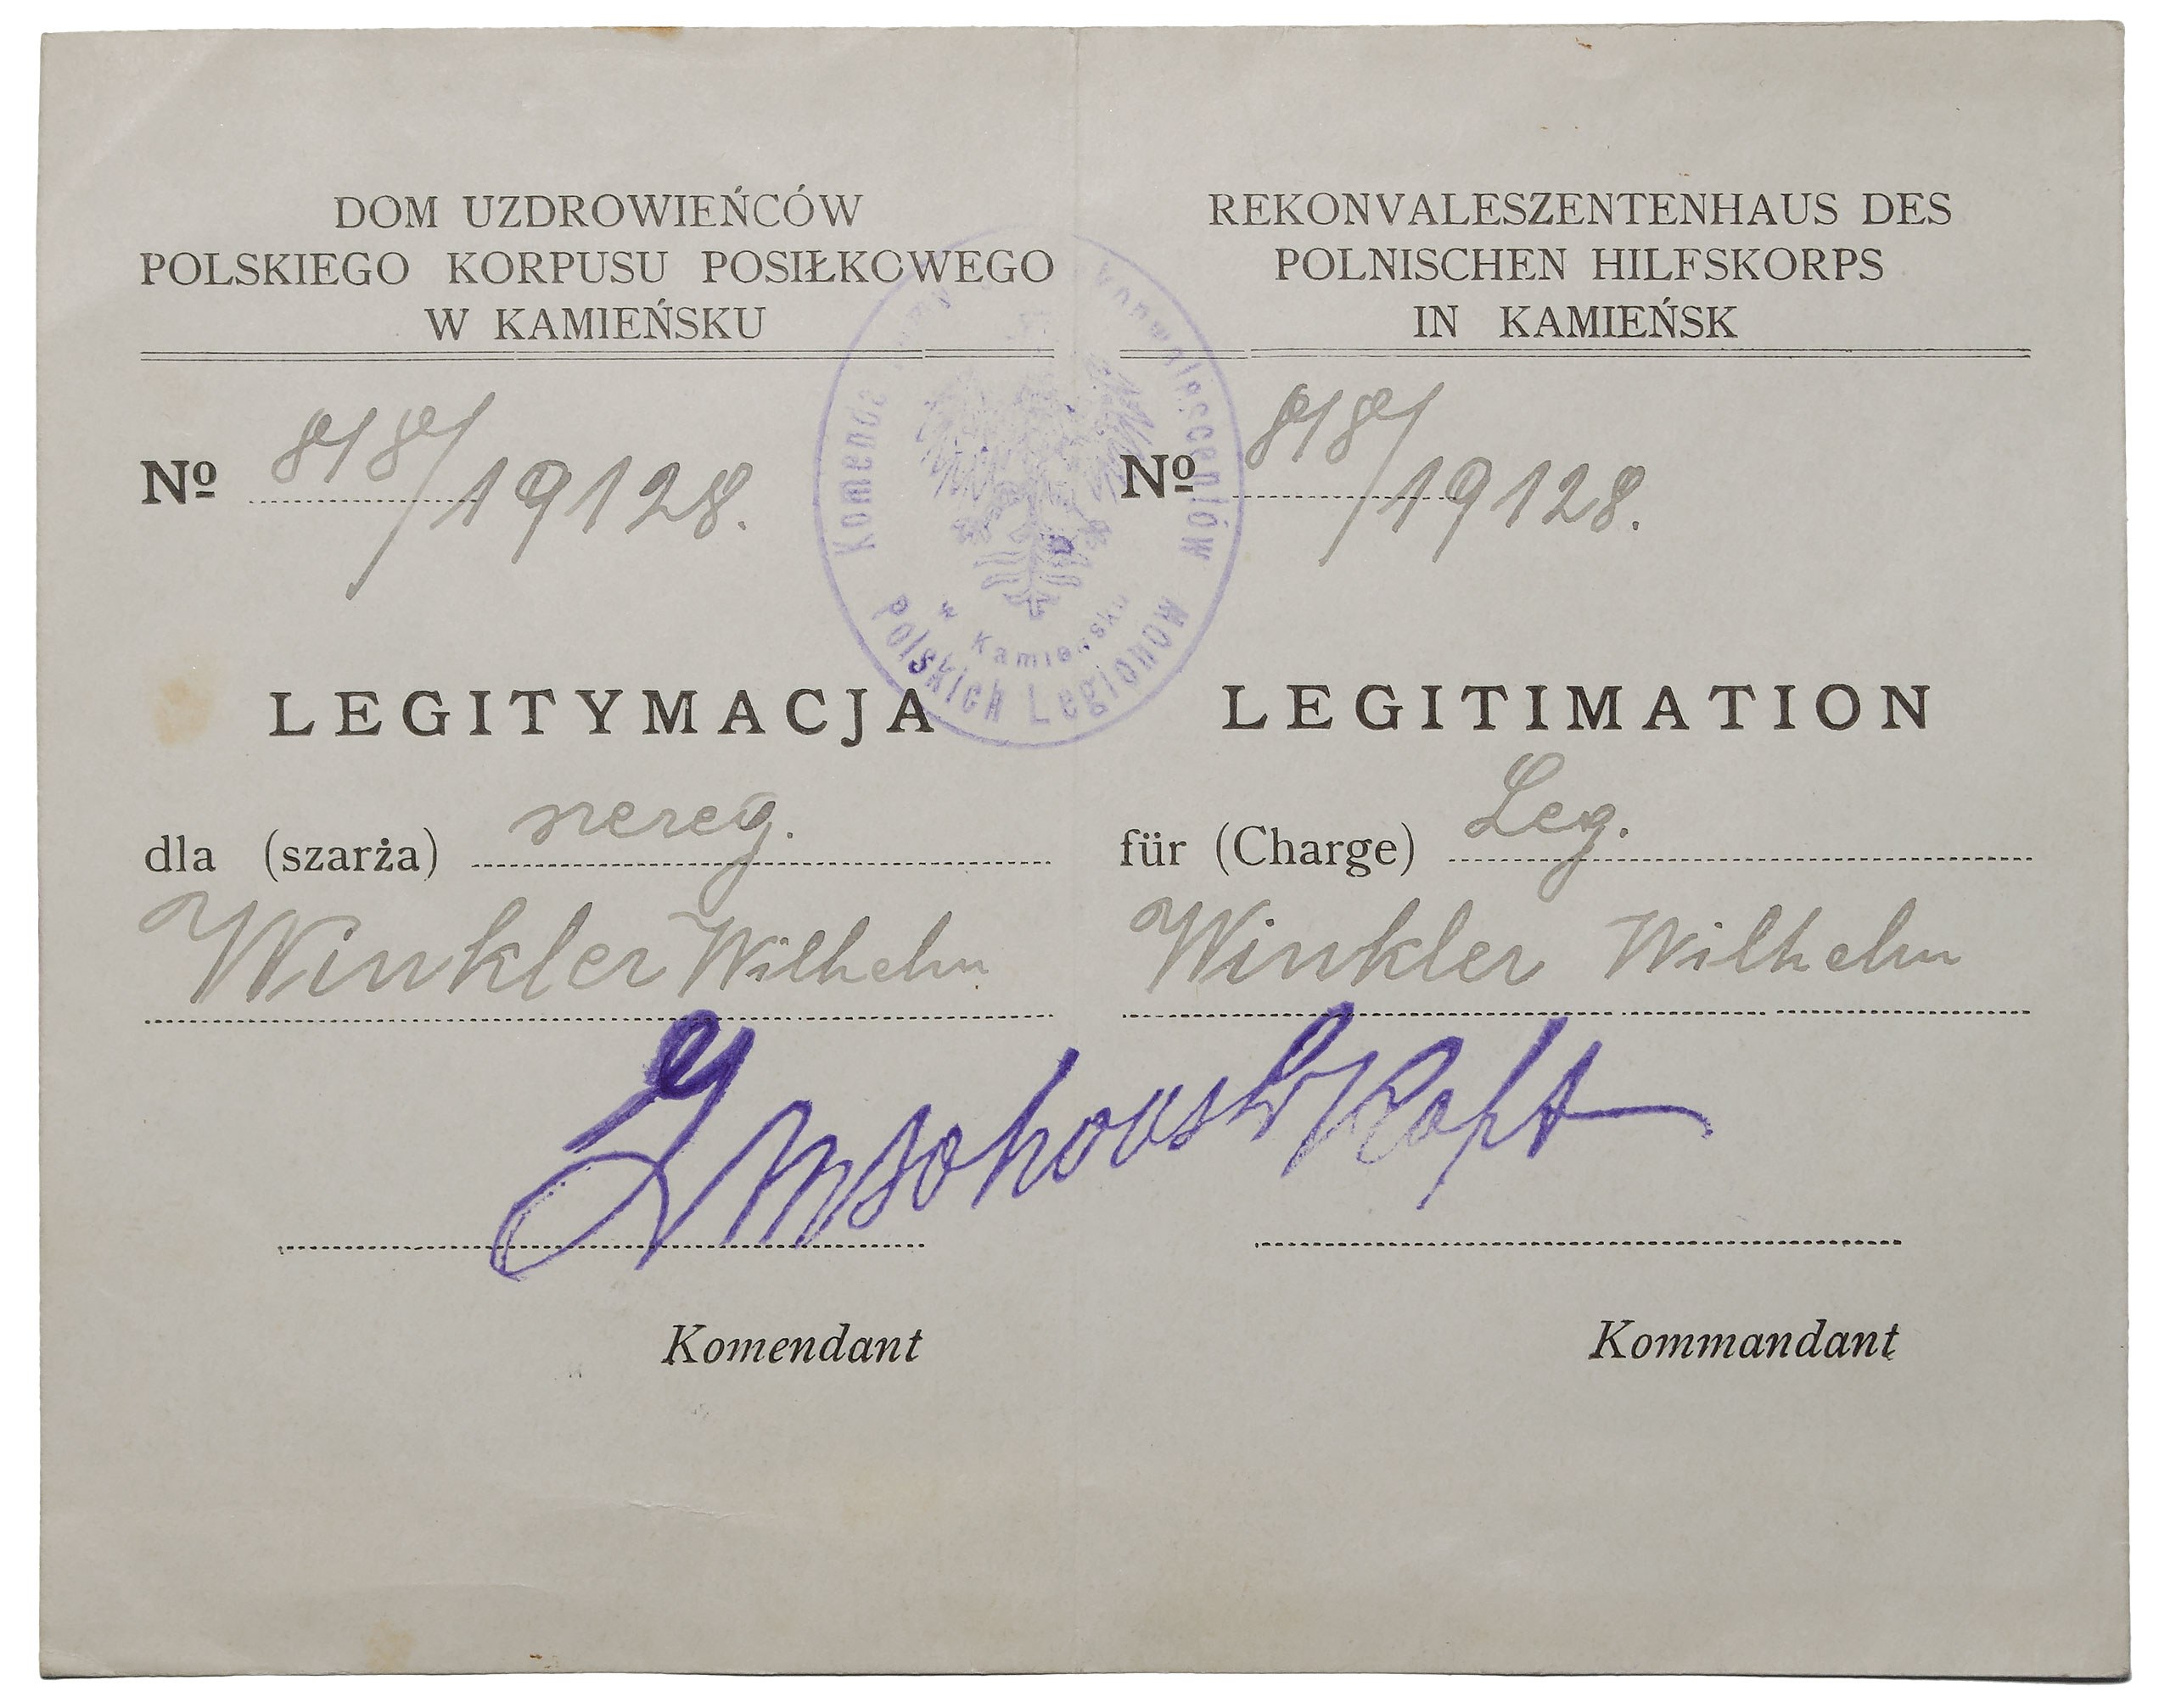 DOM UZDROWIEŃCÓW
POLSKIEGO KORPUSU POSIŁKOWEGO
W KAMIEŃSKU
Nº 818/19128.
LEGITYMACJA
dla (szarża) szereg.
Winkler Wilhelm
Komendant
REKONVALESZENTENHAUS DES
POLNISCHEN HILFSKORPS
IN KAMIEŃSK
Nº 818/19128.
LEGITIMATION
für (Charge) Leg.
Winkler Wilhelm
Kommandant
Komenda
Polskich Legionów
w Kamieńsku